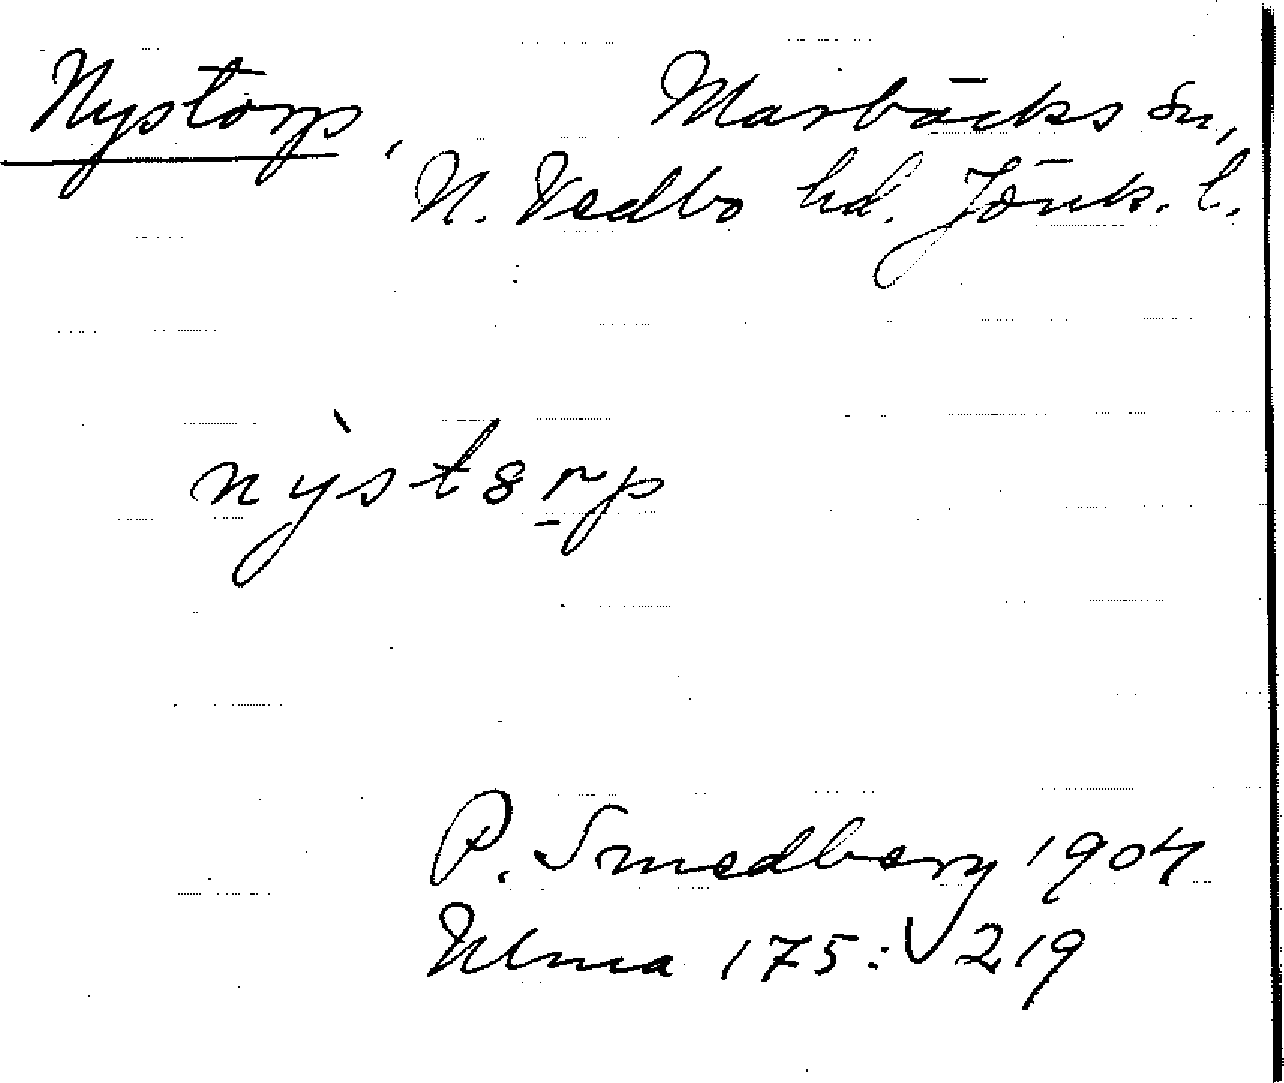 Nystorp, Marbäcks sn,
N. Vedbo hd. Jönk. l.
ny̍st8rp
P. Smedberg 1904
Ulma 175: 219